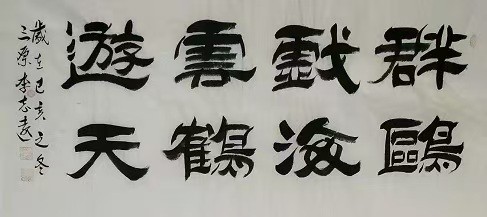 群鷗
戲海
雲鶴
遊天
歲在己亥之冬
三原李志遠